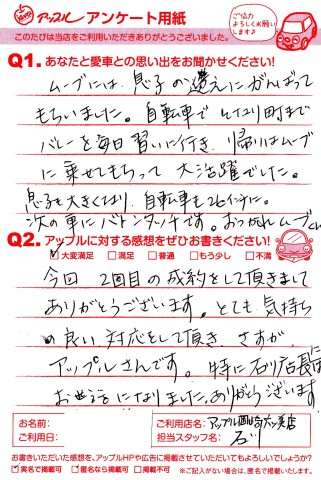 アップル アンケート用紙
ご協力
よろしくお願い
します♪
このたびは当店をご利用いただきありがとうございました。
Q1. あなたと愛車との思い出をお聞かせください!
ムーブには、息子の迎えにがんばって
もらいました。自転車で となり町まで
バレーを毎日習いに行き、帰りはムーブ
に乗せてもらって 大活躍でした。
息子も大きくなり、自転車も26インチに。
次の車にバトンタッチです。おつかれムーブくん
Q2. アップルに対する感想をぜひお書きください!
☑大変満足 □満足 □普通 □もう少し □不満
今回、2回目の成約をして頂きまして
ありがとうございます。とても気持ち
の良い対応をして頂き、さすが
アップルさんです。特に石川店長には
お世話になりました。ありがとうございます。
お名前:
ご利用日:
ご利用店名: アップル
担当スタッフ名: 石川
お書きいただいた感想を、アップルHPや広告に掲載させていただいてもよろしいでしょうか?
☑実名で掲載可 ☑匿名なら掲載可 □掲載不可 ※ご記入がない場合は、匿名で掲載いたします。